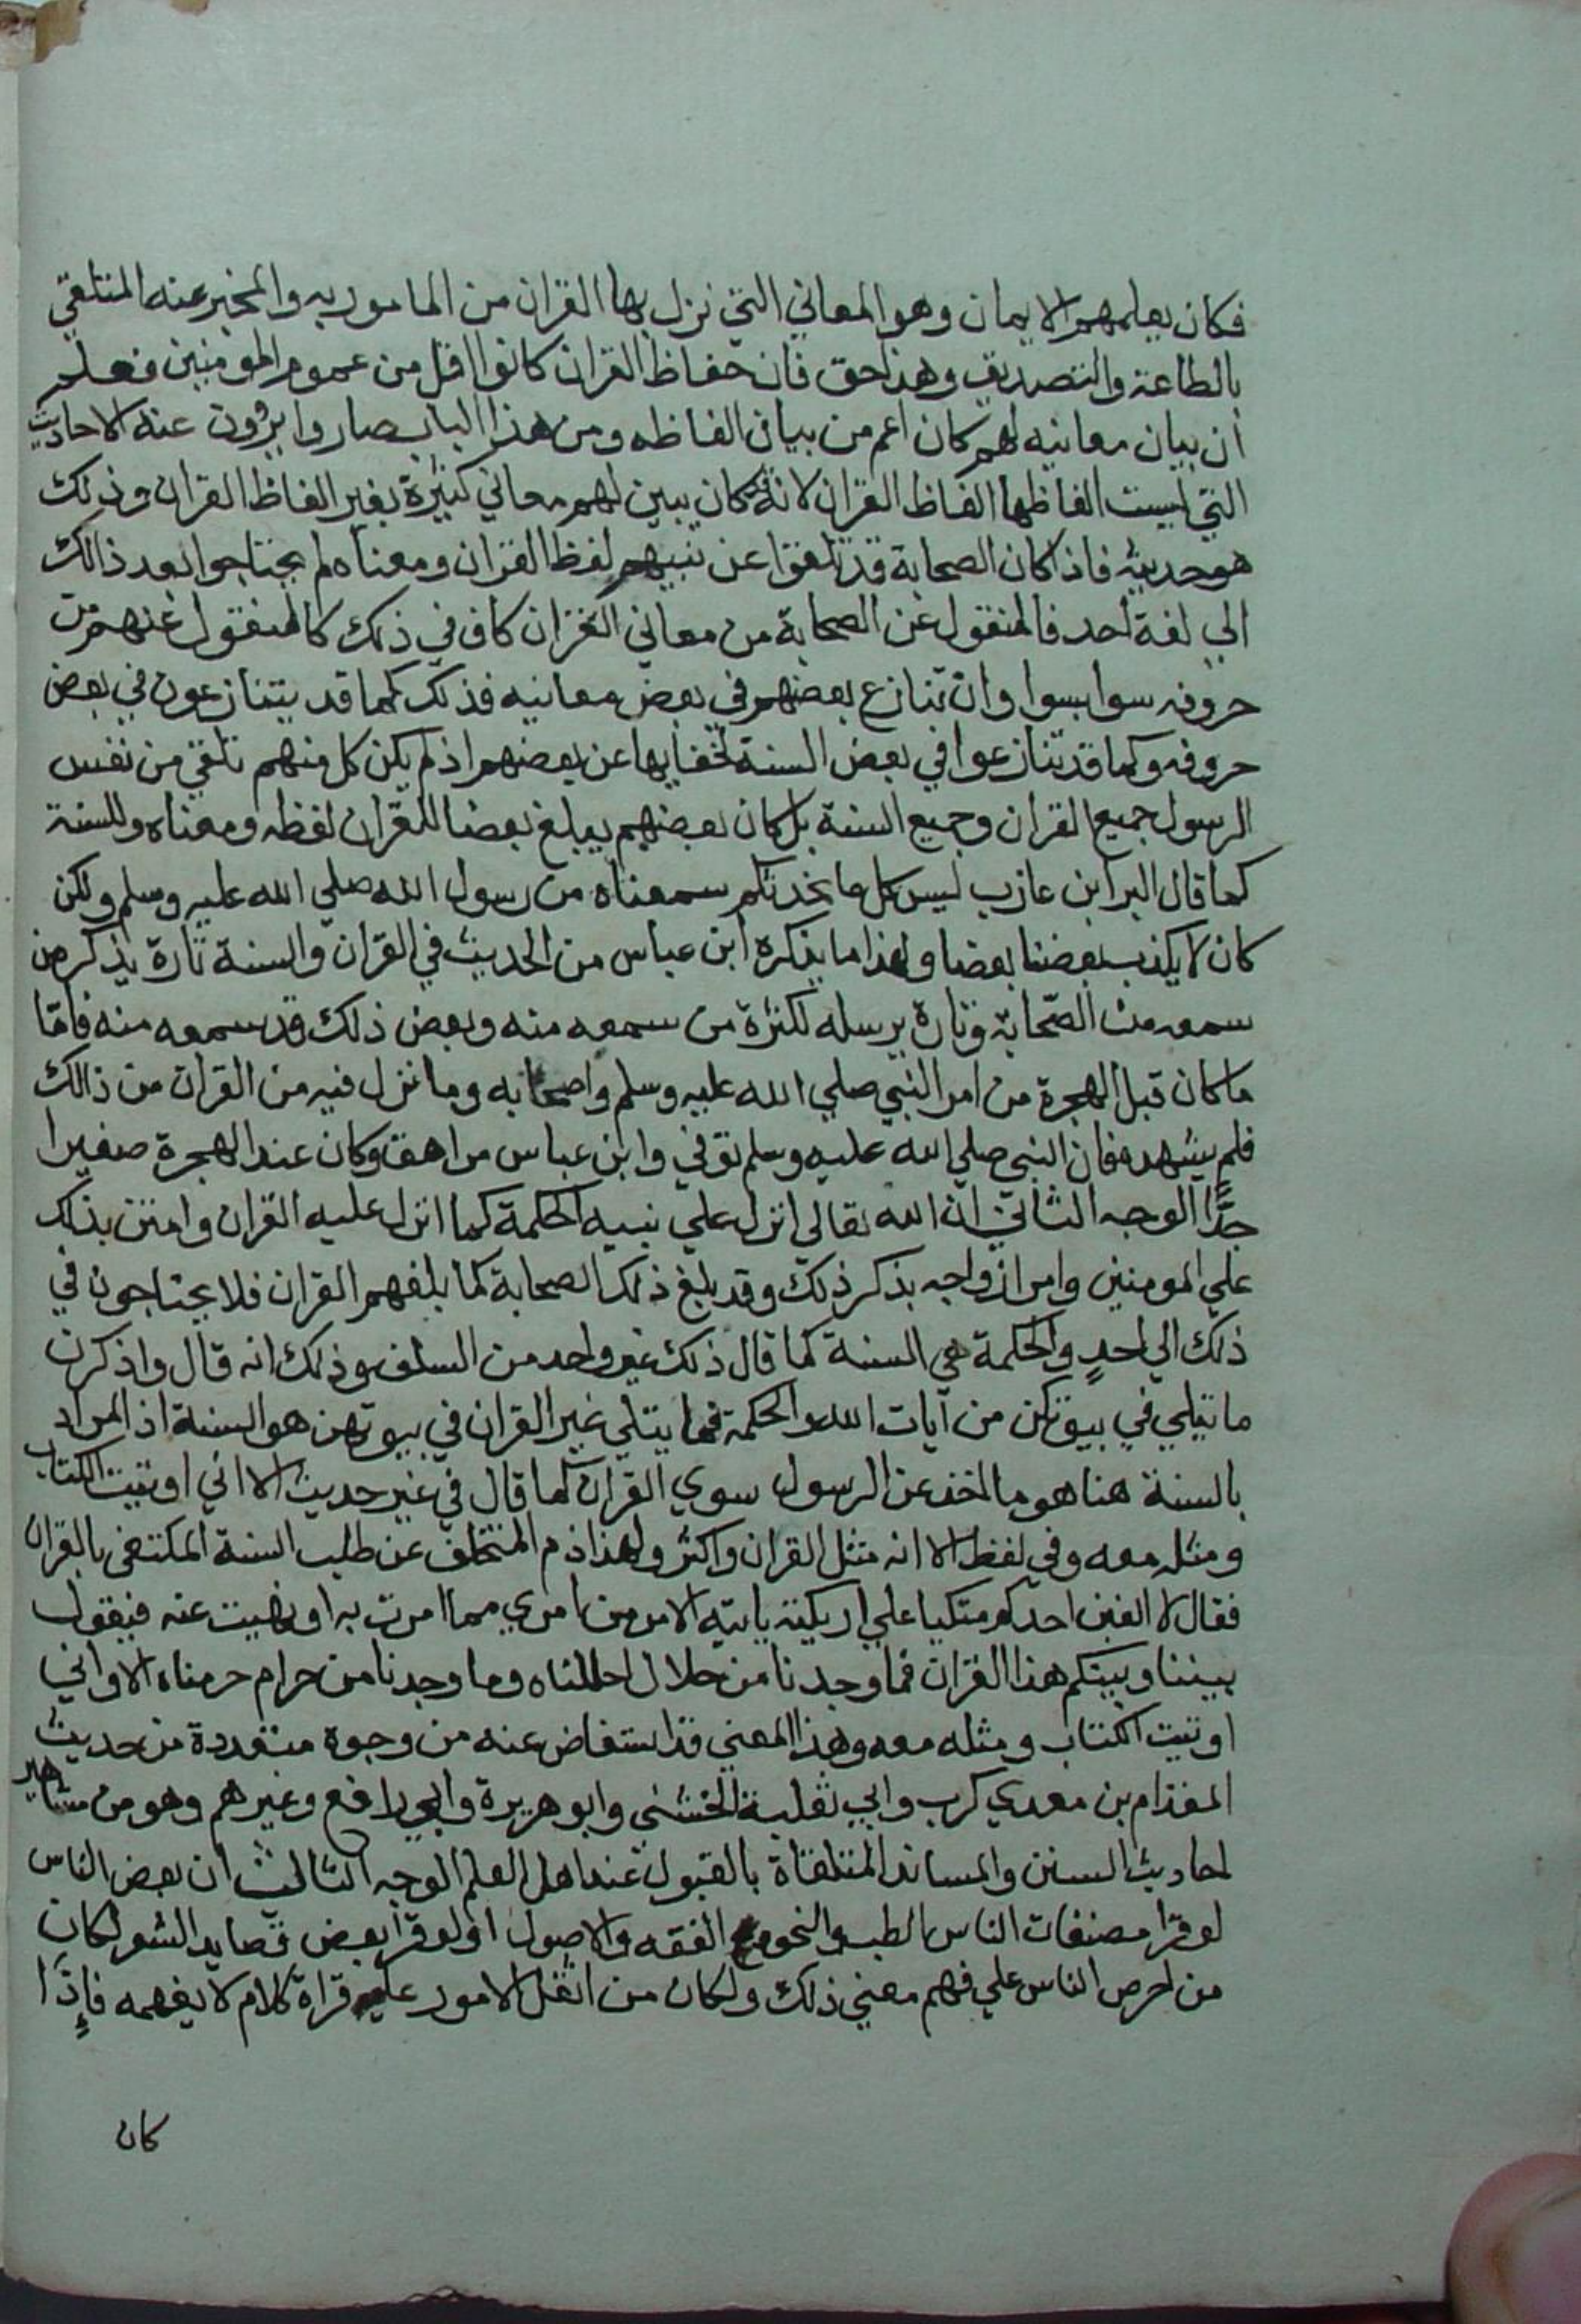 فكان يعلمهم الايمان وهو المعاني التي نزل بها القران من المامور به والمخبر عنه المتلقي
بالطاعة والتصديق وهذا حق فان حفاظ القران كانوا اقل من عموم المومنين فعلم
ان بيان معانيه لهم كان اعم من بيان الفاظه ومن هذا الباب صاروا يروون عنه الاحاديث
التي ليست الفاظها الفاظ القران لانه كان يبين لهم معاني كثيرة بغير الفاظ القران وذلك
هو حديثه فاذا كان الصحابة قد تلقوا عن نبيهم لفظ القران ومعناه لم يحتاجوا بعد ذالك
الي لغة احد فالمنقول عن الصحابة من معاني القران كاف في ذلك كالمنقول عنهم من
حروفه سوا بسوا وان تنازع بعضهم في بعض معانيه فذلك كما قد يتنازعون في بعض
حروفه وكما قد تنازعوا في بعض السنة لخفايها عن بعضهم اذ لم يكن كل منهم تلقي من نفس
الرسول جميع القران وجميع السنة بل كان بعضهم يبلغ بعضا للقران لفظه ومعناه وللسنة
كما قال البرا ابن عازب ليس كل ما نحدثكم سمعناه من رسول الله صلي الله عليه وسلم ولكن
كان لا يكذب بعضنا بعضا ولهذا ما يذكره ابن عباس من الحديث في القران والسنة تارة يذكر من
سمعه من الصحابة وتارة يرسله لكثرة من سمعه منه وبعض ذلك قد سمعه منه فامّا
ما كان قبل الهجرة من امر النبي صلي الله عليه وسلم واصحابه وما نزل فيه من القران من ذالك
فلم يشهده فان النبي صلي الله عليه وسلم توفي وابن عباس مراهق وكان عند الهجرة صغيرا
جدًّا الوجه الثاني ان الله تعالي انزل علي نبيه الحكمة كما انزل عليه القران وامتن بذلك
علي المومنين وامر ازواجه بذكر ذلك وقد بلغ ذلك الصحابة كما بلغهم القران فلا يحتاجون في
ذلك الي احدٍ والحكمة هي السنة كما قال ذلك غير واحد من السلف وذلك انه قال واذكرن
ما يتلي في بيوتكن من آيات الله والحكمة فما يتلي غير القران في بيوتهن هو السنة اذ المراد
بالسنة هنا هو ما اخذ عن الرسول سوي القران كما قال في غير حديث الا اني اوتيت الكتاب
ومثله معه وفي لفظ الا انه مثل القران واكثر ولهذا ذم المتخلف عن طلب السنة المكتفي بالقران
فقال لا الفين احدكم متكيا علي اريكته ياتيه الامر من امري مما امرت به او نهيت عنه فيقول
بيننا وبينكم هذا القران فما وجدنا من حلال احللناه وما وجدنا من حرام حرمناه الا واني
اوتيت الكتاب ومثله معه وهذا المعني قد استفاض عنه من وجوه متعددة من حديث
المقدام بن معدي كرب وابي ثعلبة الخشني وابو هريرة وابي رافع وغيرهم وهو من مشاهير
احاديث السنن والمساند المتلقاة بالقبول عند اهل العلم الوجه الثالث ان بعض الناس
لو قرا مصنفات الناس الطب والنحو الفقه والاصول او لو قرا بعض قصايد الشعر لكان
من احرص الناس علي فهم معني ذلك ولكان من اثقل الامور عليه قراة كلام لا يفهمه فاذًا
كان